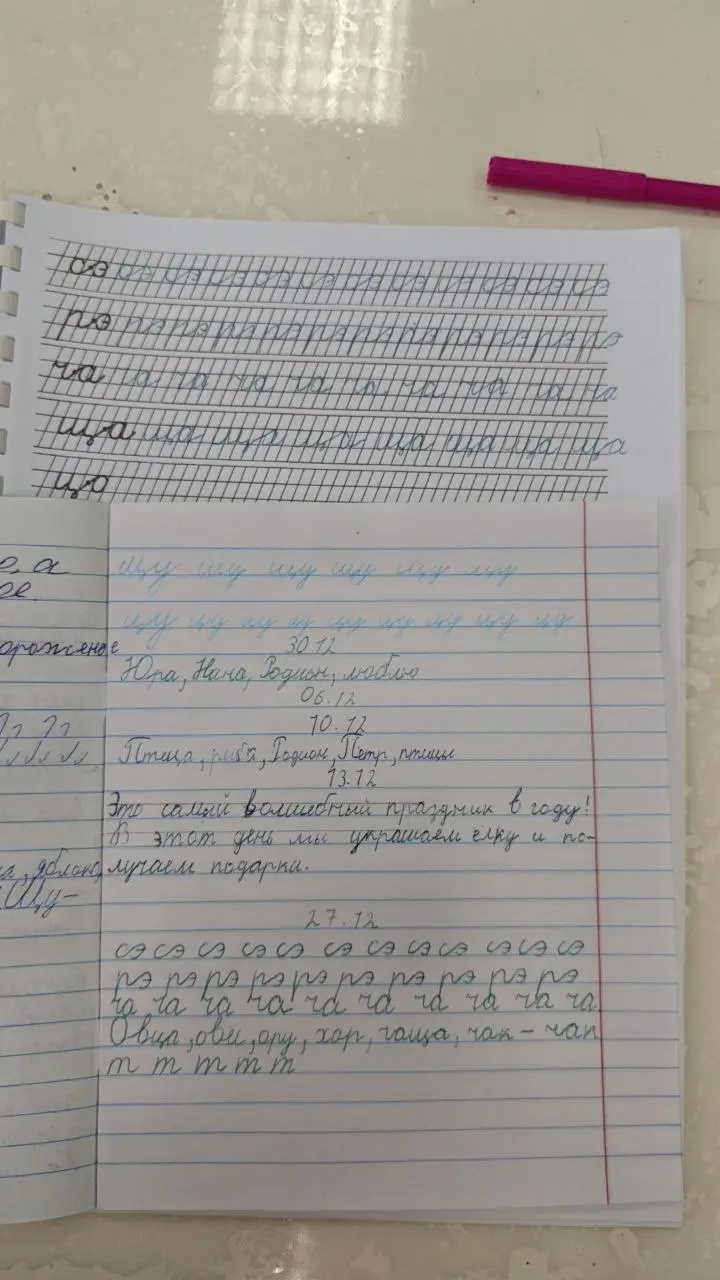 сэ сэ сэ сэ сэ сэ сэ сэ сэ сэ сэ сэ
рэ рэ рэ рэ рэ рэ рэ рэ рэ рэ рэ рэ
ча ча ча ча ча ча ча ча ча ча
ща ща ща ща ща ща ща ща
цо
щу щу щу щу щу щу
цу цу цу цу цу цу цу цу цу
30.12
Юра, Нана, Родион, люблю
06.12
10.12
Птица, рыба, Родион, Петр, птицы
13.12
Это самый волшебный праздник в году!
В этот день мы украшаем ёлку и по-
лучаем подарки.
27.12
сэ сэ сэ сэ сэ сэ сэ сэ сэ сэ сэ сэ
рэ рэ рэ рэ рэ рэ рэ рэ рэ рэ
ча ча ча ча ча ча ча ча ча ча
Овца, ору, хор, чаща, чак - чак
т т т т т
е, а
ое.
яблоко,
Щу-